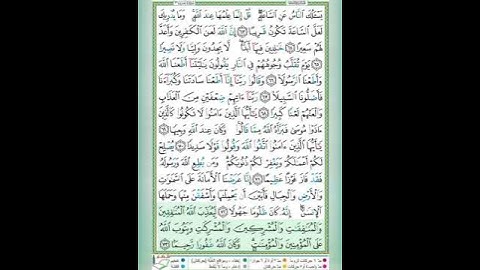 يَسْـَٔلُكَ ٱلنَّاسُ عَنِ ٱلسَّاعَةِ ۖ قُلْ إِنَّمَا عِلْمُهَا عِندَ ٱللَّهِ ۚ وَمَا يُدْرِيكَ
لَعَلَّ ٱلسَّاعَةَ تَكُونُ قَرِيبًا ٦٣ إِنَّ ٱللَّهَ لَعَنَ ٱلْكَٰفِرِينَ وَأَعَدَّ
لَهُمْ سَعِيرًا ٦٤ خَٰلِدِينَ فِيهَآ أَبَدًا ۖ لَّا يَجِدُونَ وَلِيًّا وَلَا نَصِيرًا
٦٥ يَوْمَ تُقَلَّبُ وُجُوهُهُمْ فِى ٱلنَّارِ يَقُولُونَ يَٰلَيْتَنَآ أَطَعْنَا ٱللَّهَ
وَأَطَعْنَا ٱلرَّسُولَا۠ ٦٦ وَقَالُوا۟ رَبَّنَآ إِنَّآ أَطَعْنَا سَادَتَنَا وَكُبَرَآءَنَا
فَأَضَلُّونَا ٱلسَّبِيلَا۠ ٦٧ رَبَّنَآ ءَاتِهِمْ ضِعْفَيْنِ مِنَ ٱلْعَذَابِ
وَٱلْعَنْهُمْ لَعْنًا كَبِيرًا ٦٨ يَٰٓأَيُّهَا ٱلَّذِينَ ءَامَنُوا۟ لَا تَكُونُوا۟ كَٱلَّذِينَ
ءَاذَوْا۟ مُوسَىٰ فَبَرَّأَهُ ٱللَّهُ مِمَّا قَالُوا۟ ۚ وَكَانَ عِندَ ٱللَّهِ وَجِيهًا ٦٩
يَٰٓأَيُّهَا ٱلَّذِينَ ءَامَنُوا۟ ٱتَّقُوا۟ ٱللَّهَ وَقُولُوا۟ قَوْلًا سَدِيدًا ٧٠ يُصْلِحْ
لَكُمْ أَعْمَٰلَكُمْ وَيَغْفِرْ لَكُمْ ذُنُوبَكُمْ ۗ وَمَن يُطِعِ ٱللَّهَ وَرَسُولَهُۥ
فَقَدْ فَازَ فَوْزًا عَظِيمًا ٧١ إِنَّا عَرَضْنَا ٱلْأَمَانَةَ عَلَى ٱلسَّمَٰوَٰتِ
وَٱلْأَرْضِ وَٱلْجِبَالِ فَأَبَيْنَ أَن يَحْمِلْنَهَا وَأَشْفَقْنَ مِنْهَا وَحَمَلَهَا
ٱلْإِنسَٰنُ ۖ إِنَّهُۥ كَانَ ظَلُومًا جَهُولًا ٧٢ لِّيُعَذِّبَ ٱللَّهُ ٱلْمُنَٰفِقِينَ
وَٱلْمُنَٰفِقَٰتِ وَٱلْمُشْرِكِينَ وَٱلْمُشْرِكَٰتِ وَيَتُوبَ ٱللَّهُ
عَلَى ٱلْمُؤْمِنِينَ وَٱلْمُؤْمِنَٰتِ ۗ وَكَانَ ٱللَّهُ غَفُورًا رَّحِيمًۢا ٧٣